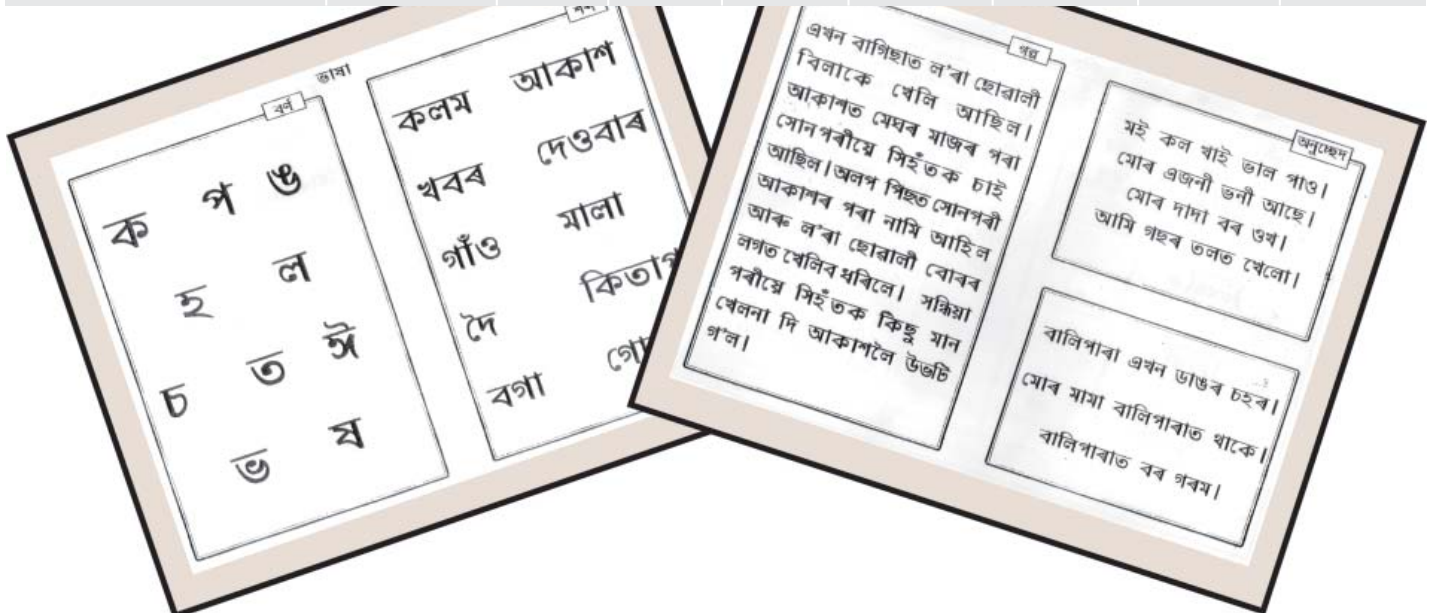 ভাষা
বৰ্ণ
ক প ঙ
হ ল
চ ত ঈ
ভ ষ
কলম আকাশ
খবৰ দেওবাৰ
গাঁও মালা
দৈ
বগা
গল্প
এখন বাগিছাত ল'ৰা ছোৱালী
বিলাকে খেলি আছিল।
আকাশত মেঘৰ মাজৰ পৰা
সোনপৰীয়ে সিহঁতক চাই
আছিল। অলপ পিছত সোনপৰী
আকাশৰ পৰা নামি আহিল
আৰু ল'ৰা ছোৱালী বোৰৰ
লগত খেলিব ধৰিলে। সন্ধিয়া
পৰীয়ে সিহঁতক কিছু মান
খেলনা দি আকাশলৈ উভটি
গ'ল।
অনুচ্ছেদ
মই কল খাই ভাল পাও।
মোৰ এজনী ভনী আছে।
মোৰ দাদা বৰ ওখ।
আমি গছৰ তলত খেলো।
বালিপাৰা এখন ডাঙৰ চহৰ।
মোৰ মামা বালিপাৰাত থাকে।
বালিপাৰাত বৰ গৰম।